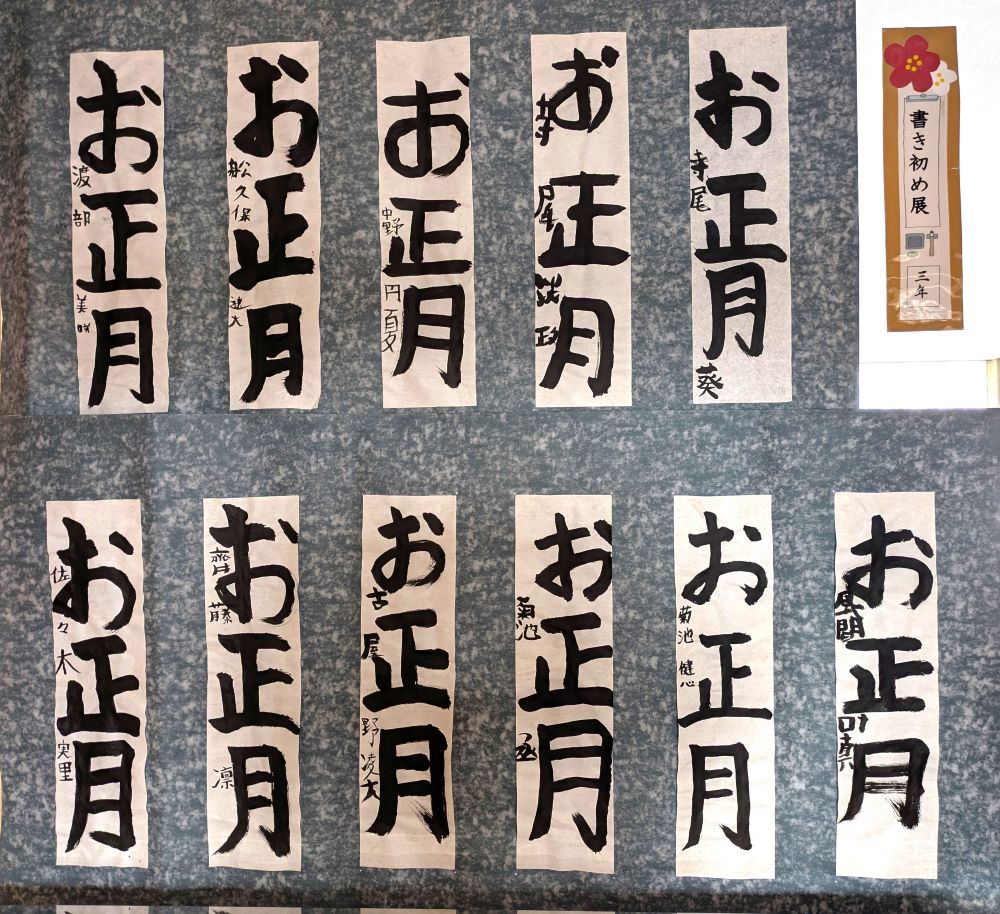 書き初め展
三年
お正月
寺尾
葵
お正月
お正月
中野
円夏
お正月
舩久保
お正月
渡部
美咲
お正月
風間
お正月
菊池
健心
お正月
菊池
丞
お正月
古屋野凌大
お正月
齊藤
凛
お正月
佐々木
実里